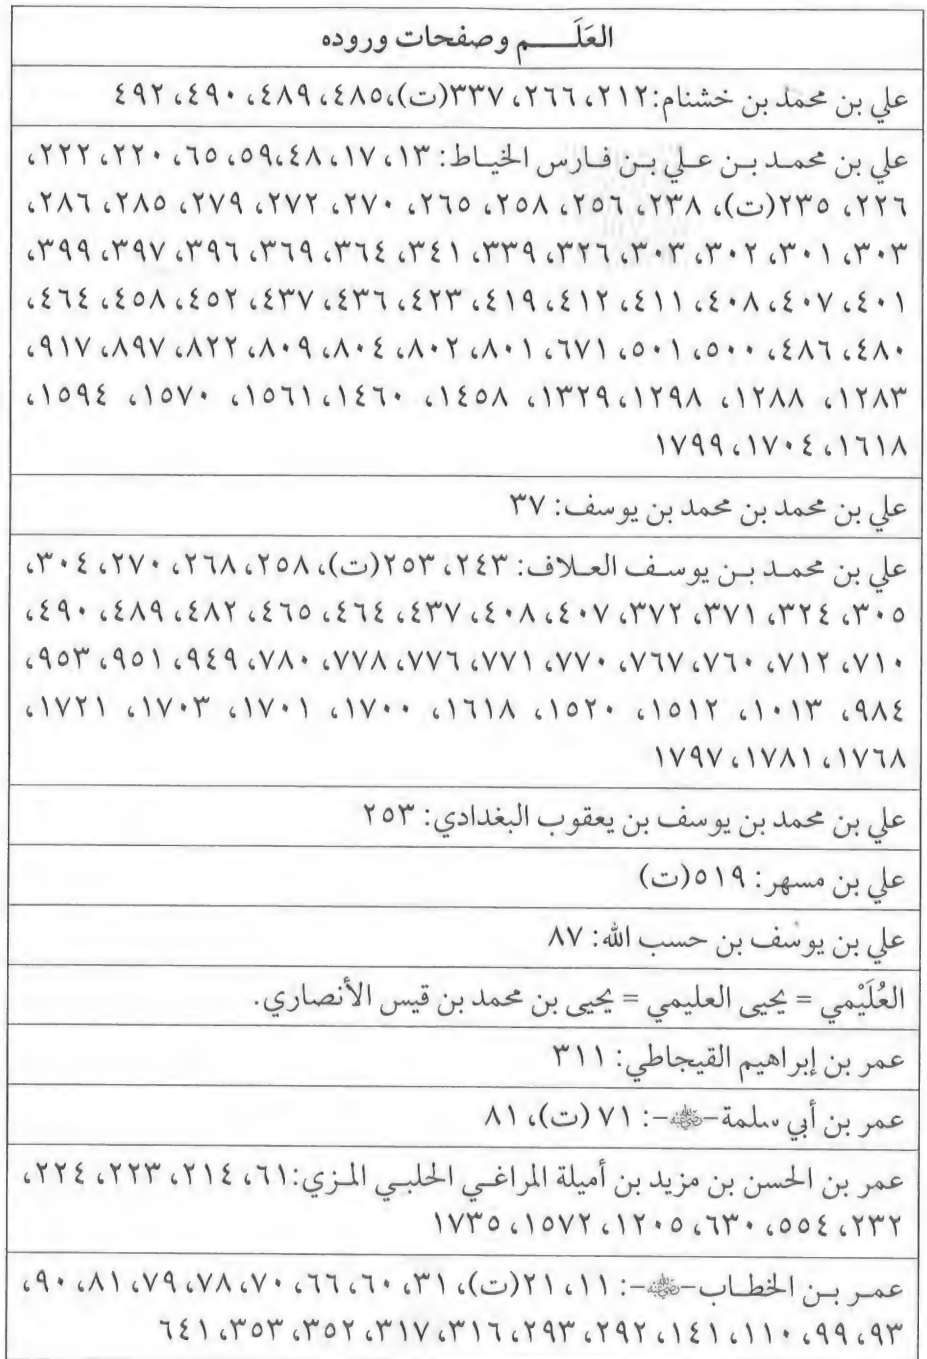 العَلَـــــم وصفحات وروده
علي بن محمد بن خشنام: ٢١٢، ٢٦٦، ٣٣٧(ت)، ٤٨٥، ٤٨٩، ٤٩٠، ٤٩٢
علي بن محمـد بـن عـلي بـن فـارس الخيـاط: ١٣، ١٧، ٤٨، ٥٩، ٦٥، ٢٢٠، ٢٢٢،
٢٢٦، ٢٣٥(ت)، ٢٣٨، ٢٥٦، ٢٥٨، ٢٦٥، ٢٧٠، ٢٧٢، ٢٧٩، ٢٨٥، ٢٨٦،
٣٠٣، ٣٠١، ٣٠٢، ٣٠٣، ٣٢٦، ٣٣٩، ٣٤١، ٣٦٤، ٣٦٩، ٣٩٦، ٣٩٧، ٣٩٩،
٤٠١، ٤٠٧، ٤٠٨، ٤١١، ٤١٢، ٤١٩، ٤٢٣، ٤٣٦، ٤٣٧، ٤٥٢، ٤٥٨، ٤٦٤،
٤٨٠، ٤٨٦، ٥٠٠، ٥٠١، ٦٧١، ٨٠١، ٨٠٢، ٨٠٤، ٨٠٩، ٨٢٢، ٨٩٧، ٩١٧،
١٢٨٣، ١٢٨٨، ١٢٩٨، ١٣٢٩، ١٤٥٨، ١٤٦٠، ١٥٦١، ١٥٧٠، ١٥٩٤،
١٦١٨، ١٧٠٤، ١٧٩٩
علي بن محمد بن محمد بن يوسف: ٣٧
علي بن محمـد بـن يوسـف العـلاف: ٢٤٣، ٢٥٣(ت)، ٢٥٨، ٢٦٨، ٢٧٠، ٣٠٤،
٣٠٥، ٣٢٤، ٣٧١، ٣٧٢، ٤٠٧، ٤٠٨، ٤٣٧، ٤٦٤، ٤٦٥، ٤٨٢، ٤٨٩، ٤٩٠،
٧١٠، ٧١٢، ٧٦٠، ٧٦٧، ٧٧٠، ٧٧١، ٧٧٦، ٧٧٨، ٧٨٠، ٩٤٩، ٩٥١، ٩٥٣،
٩٨٤، ١٠١٣، ١٥١٢، ١٥٢٠، ١٦١٨، ١٧٠٠، ١٧٠١، ١٧٠٣، ١٧٢١،
١٧٦٨، ١٧٨١، ١٧٩٧
علي بن محمد بن يوسف بن يعقوب البغدادي: ٢٥٣
علي بن مسهر: ٥١٩(ت)
علي بن يوسف بن حسب الله: ٨٧
العُلَيْمي = يحيى العليمي = يحيى بن محمد بن قيس الأنصاري.
عمر بن إبراهيم القيجاطي: ٣١١
عمر بن أبي سلمة-﵁-: ٧١ (ت)، ٨١
عمر بن الحسن بن مزيد بن أميلة المراغـي الحلبـي المـزي: ٦١، ٢١٤، ٢٢٣، ٢٢٤،
٢٣٢، ٥٥٤، ٦٣٠، ١٢٠٥، ١٥٧٢، ١٧٣٥
عمـر بـن الخطـاب-﵁-: ١١، ٢١(ت)، ٣١، ٦٠، ٦٦، ٧٠، ٧٨، ٧٩، ٨١، ٩٠،
٩٣، ٩٩، ١١٠، ١٤١، ٢٩٢، ٢٩٣، ٣١٦، ٣١٧، ٣٥٢، ٣٥٣، ٦٤١